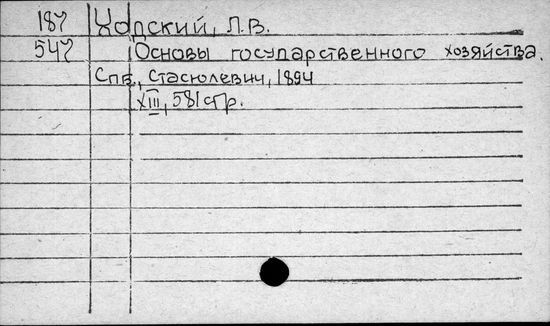 187 Ходский, Л.В.
547 Основы государственного хозяйства.
Спб., Стасюлевич, 1894
XIII, 581 стр.